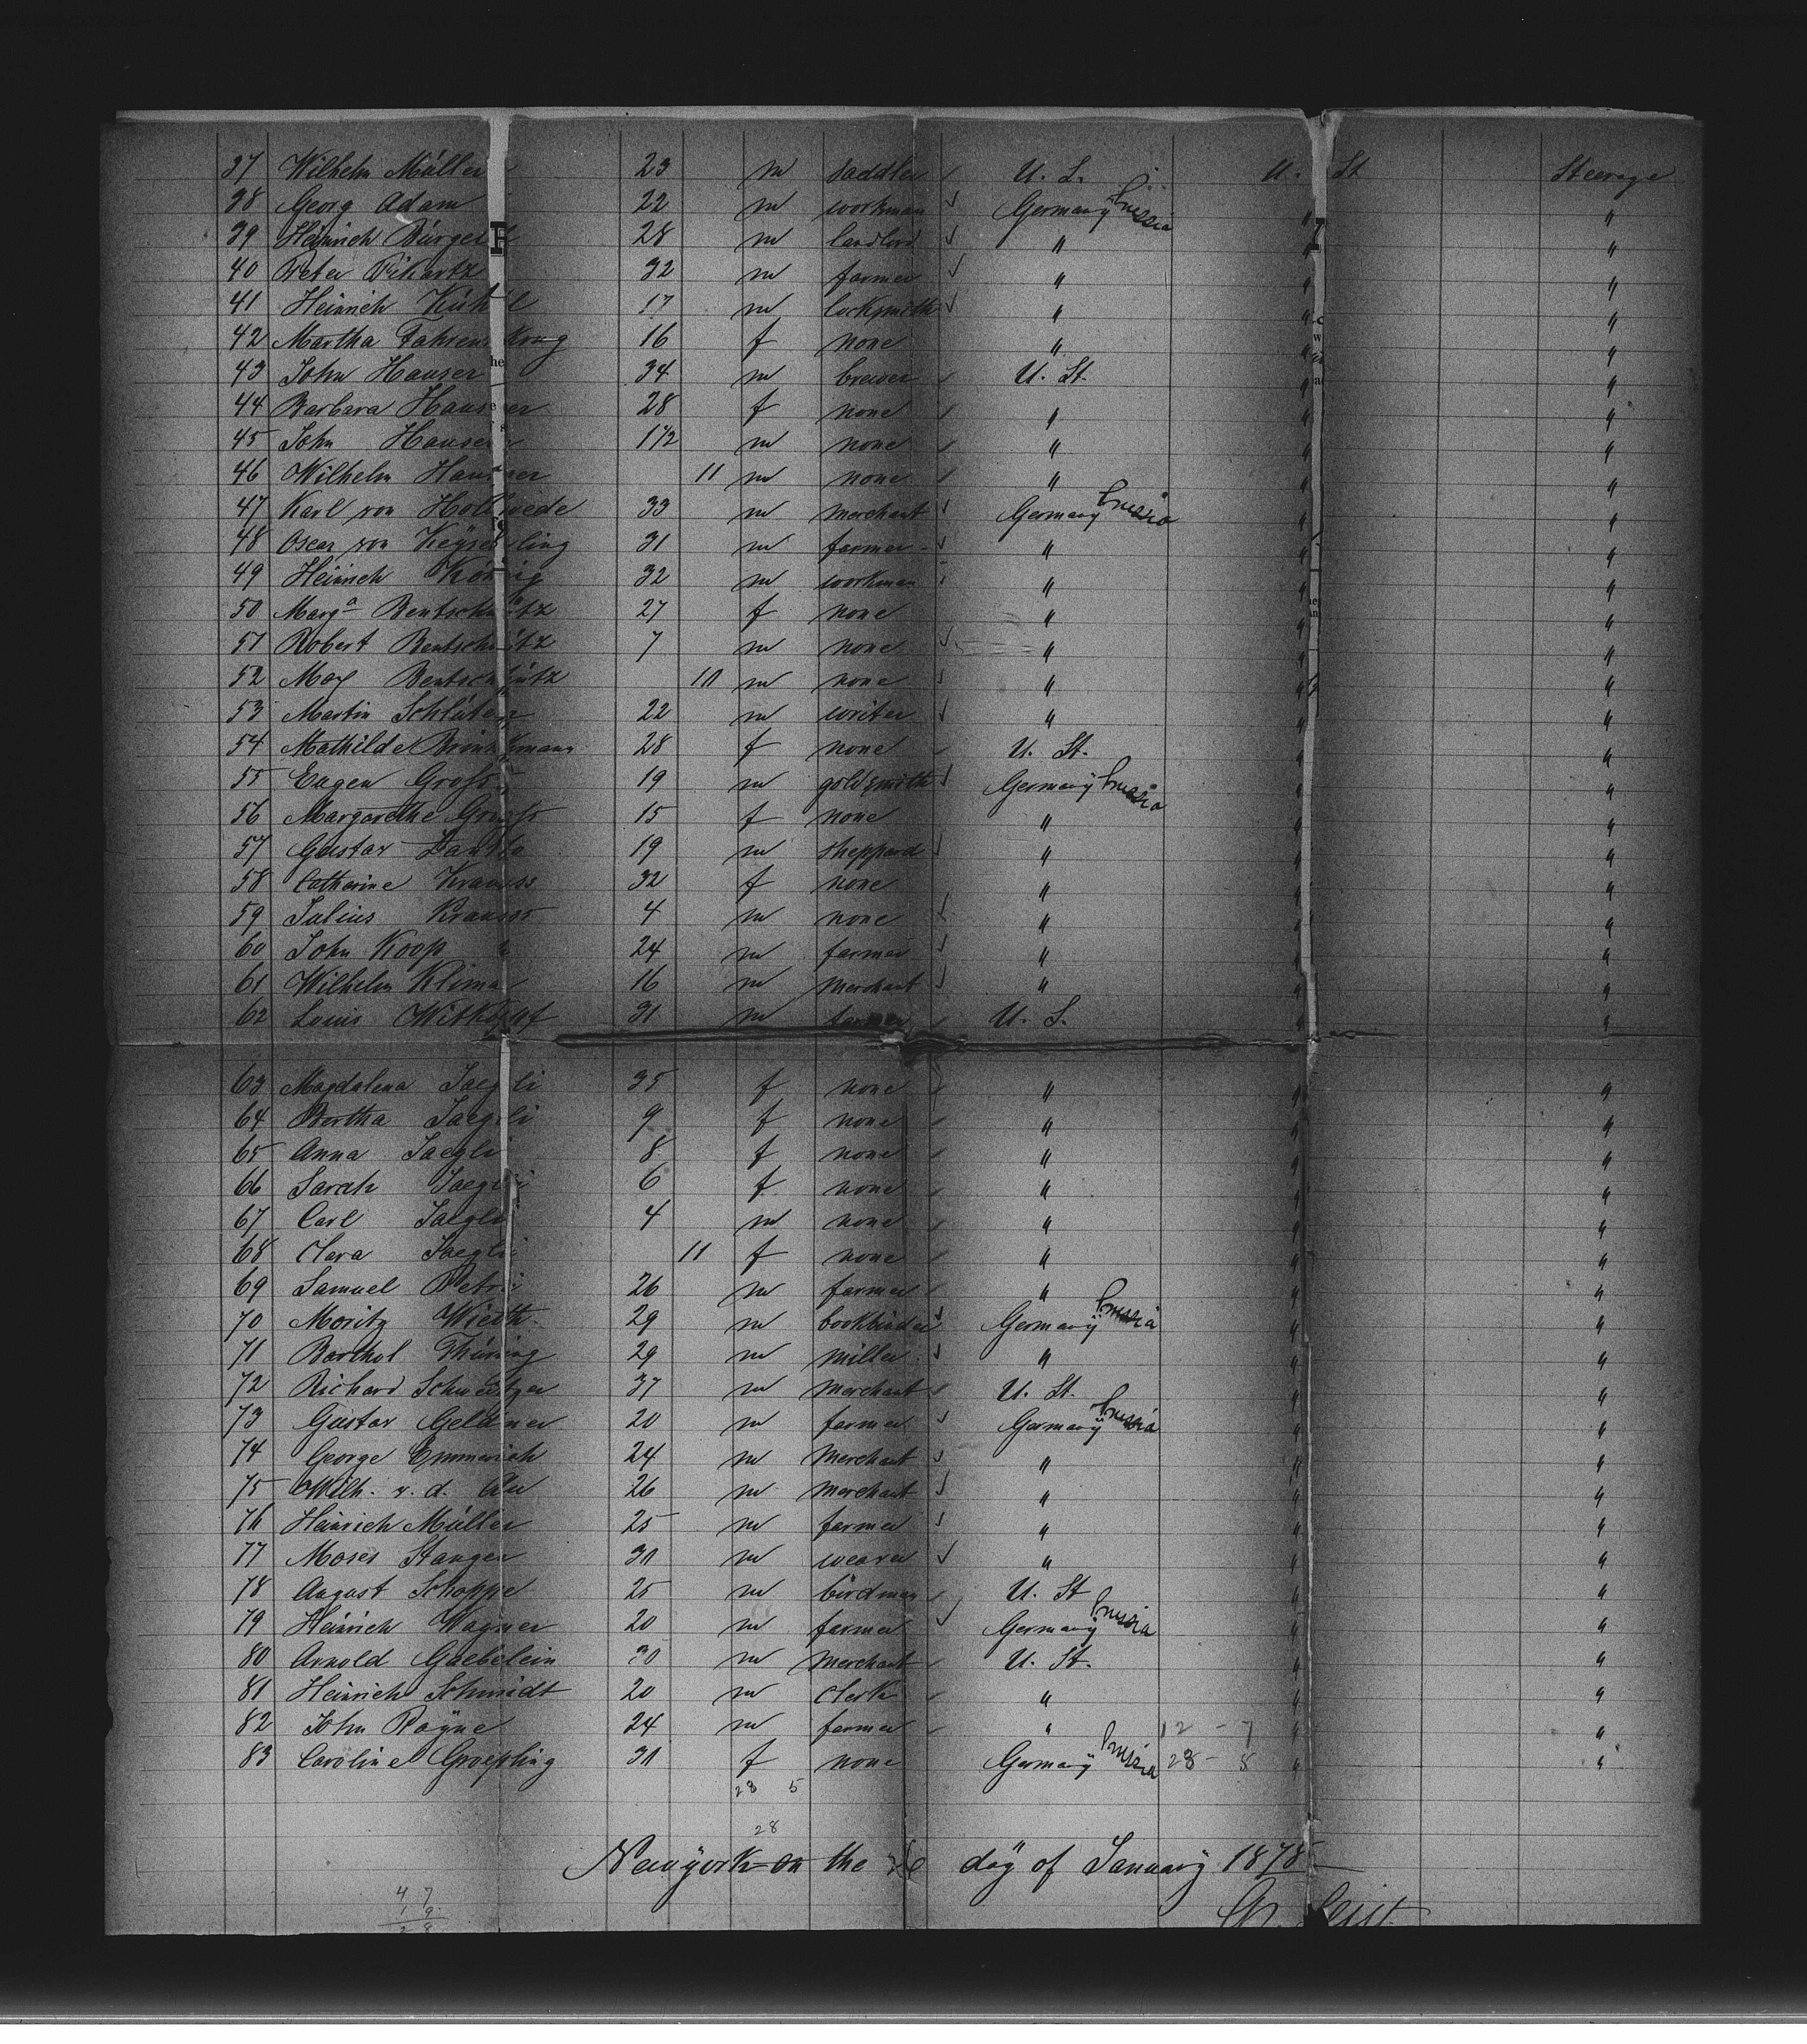 37 Wilhelm Müller 23 m saddler U. S. U. St Steerage
38 Georg Adam 22 m workman Germany Prussia " "
39 Heinrich Bürger 28 m landlord " " "
40 Peter 32 m farmer " " "
41 Heinrich 17 m locksmith " " "
42 Martha Fahrenkrug 16 f none " " "
43 John Hauser 34 m brewer U. St. " "
44 Barbara Hauser 28 f none " " "
45 John Hauser 1 1/2 m none " " "
46 Wilhelm Hauser 11 m none " " "
47 Karl von Hollwede 33 m merchant Germany Prussia " "
48 Oscar von Keyserling 31 m farmer " " "
49 Heinrich König 32 m workman " " "
50 Marga Bentschütz 27 f none " " "
51 Robert Bentschütz 7 m none " " "
52 Max Bentschütz 10 m none " " "
53 Martin Schlüter 22 m writer " " "
54 Mathilde Brinkmann 28 f none U. St. " "
55 Eugen Gross 19 m goldsmith Germany Prussia " "
56 Margarethe Gross 15 f none " " "
57 Gustav 19 m sheppard " " "
58 Catherine Krauss 32 f none " " "
59 Julius Krauss 4 m none " " "
60 John Koop 24 m farmer " " "
61 Wilhelm Klima 16 m merchant " " "
62 Louis Withopf 31 m farmer U. S. " "
63 Magdalena Jaegli 35 f none " " "
64 Bertha Jaegli 9 f none " " "
65 Anna Jaegli 8 f none " " "
66 Sarah Jaegli 6 f none " " "
67 Carl Jaegli 4 m none " " "
68 Clara Jaegli 11 f none " " "
69 Samuel Petri 26 m farmer " " "
70 Moritz Wieth. 29 m bookbinder Germany Prussia " "
71 Barthol Thüring 29 m miller " " "
72 Richard Schweitzer 37 m merchant U. St. " "
73 Gustav Geldner 20 m farmer Germany Prussia " "
74 George Emmerich 24 m merchant " " "
75 Wilh. v. d. Au 26 m merchant " " "
76 Heinrich Müller 25 m farmer " " "
77 Moses Stanger 31 m weaver " " "
78 August Schoppe 25 m birdman U. St " "
79 Heinrich Wagner 20 m farmer Germany Prussia " "
80 Arnold Gaebelein 30 m merchant U. St. " "
81 Heinrich Schmidt 20 m clerk " " "
82 John Rayne 24 m farmer " 12 - 7 " "
83 Caroline Groepling 31 f none Germany Prussia 28 - 8 " "
28 5
28
Newyork on the day of January 1878
47
19
28